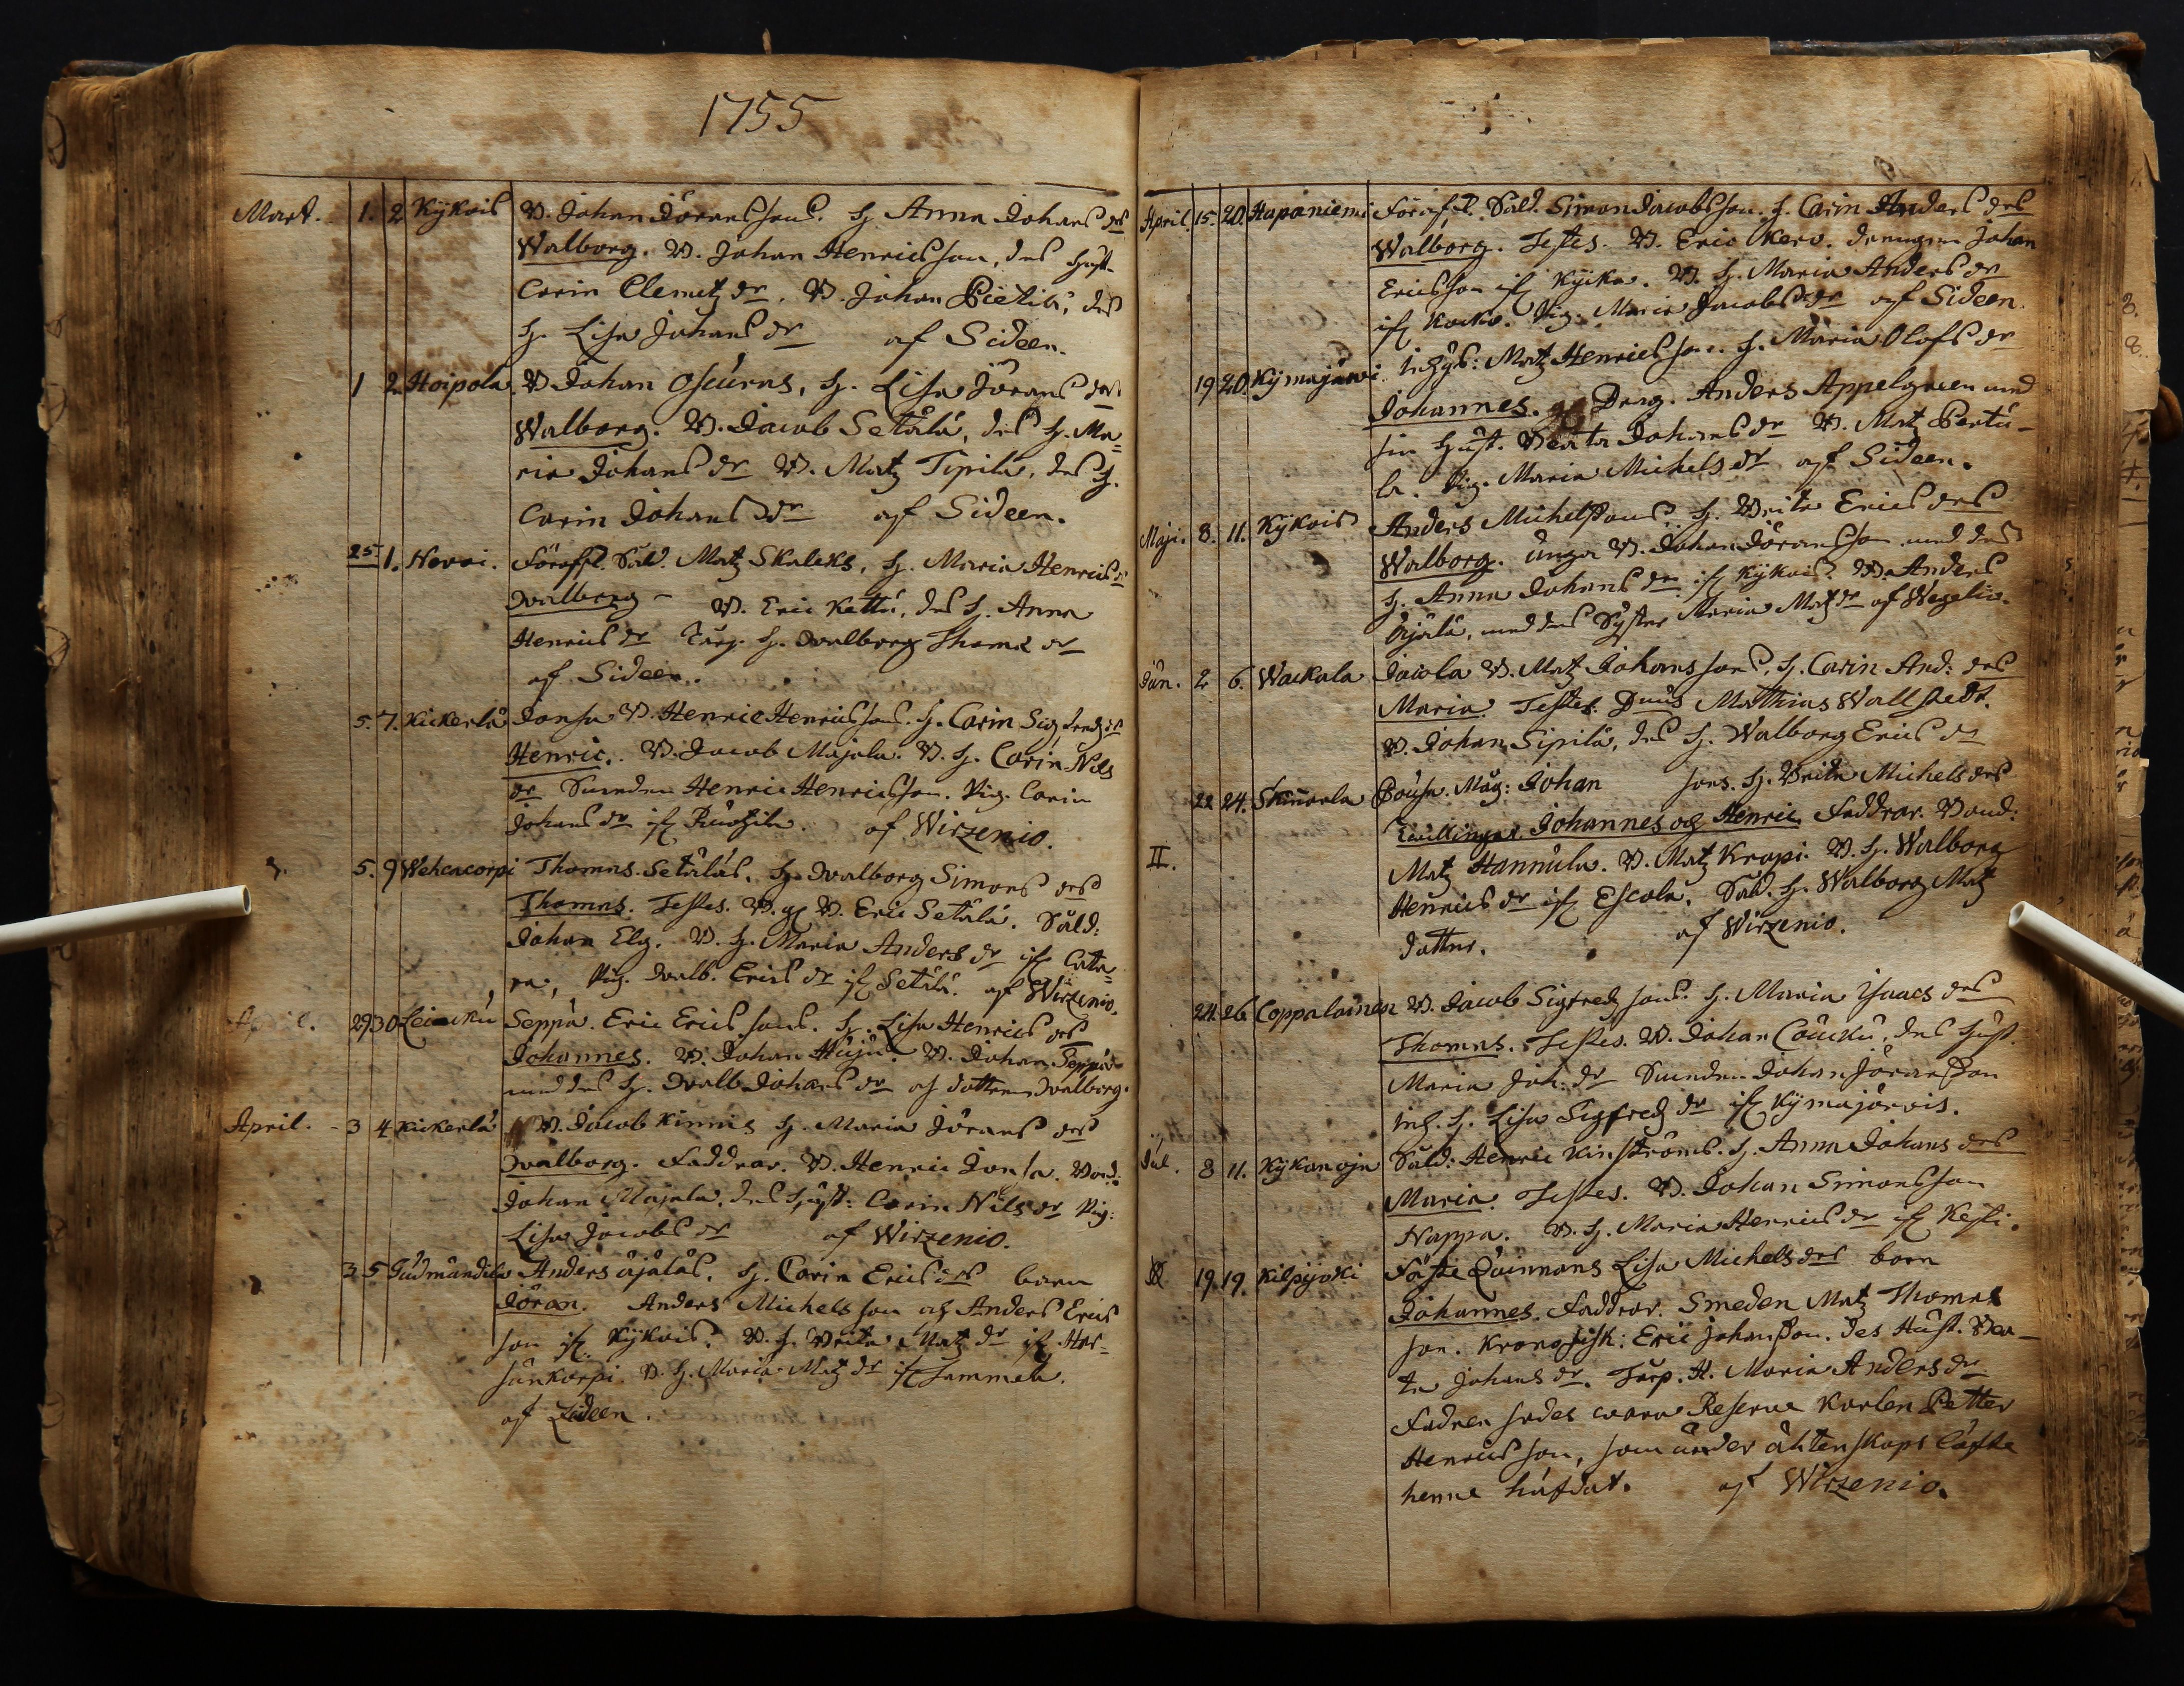 1755
Mart. 1. 2 Kÿkois B. Johan Göranssons. H. Anna Johans drs
Walborg. B. Johan Henricsson, des Hust.
Carin Clemetz dr. B. Johan Pietilä, des
H. Lisa Johans dr af Sideen.
1 2 Hoipola. B. Johan H. Lisa Görans drs
Walborg. B. Jacob Setälä, des H. Ma=
ria Johans dr B. Matz Sipilä, des H.
Carin Johans dr af Sideen.
25 1. Nevoi. Sald. Matz H. Maria Henrics
Walborg B. Eric Kettu, des H. Anna
Henrics dr H. Walborg Thomæ dr
af Sideen.
5. 7. Kickerlä Jonsa B. Henric Henricssons. H. Carin Sigfredz dr
Henric. B. Jacob Majala. B. H. Carin Nils
dr Henric Henricsson. Pig. Carin
Johans dr af Wirzenio.
5. 9 Wehcacorpi Thomas Setäläs. H. Walborg Simons drs
Thomas. Testes. B. B. Eric Setälä. Sald:
Johan Elg. B. H. Maria Anders dr Cata=
ra, Pig. Walb. Erics dr Setälä. af Wirzenio.
29 30 Seppä. Eric Ericssons. H. Lisa Henrics drs
Johannes. B. Johan B. Johan Seppä
med des H. Walb. Johans dr dottern Walborg.
April. 3 4 Kickerlä B. Jacob Kinnis H. Maria Görans drs
Walborg. Faddrar. B. Henric Jonsa.
Johan Majala. des Hust: Carin Nils dr Pig:
Lisa Jacobs dr af Wirzenio.
3 5 Anders äjäläs. H. Carin Erics drs barn
Göran. Anders Michelsson och Anders Erics
son Kÿkois. B. H. Brita Matz dr
B. H. Maria Matz dr
af Sideen.
April. 15. 20. Hapaniemi Sald. Simon Jacobsson. H. Carin Anders drs
Walborg. Testes. B. Eric Kerv. drengen Johan
Ericsson Kÿko. B. H. Maria Anders dr
Pig. Maria Jacobs dr af Sideen.
19 20. Kÿmajärvi Matz Henricsson. H. Maria Olofs dr
Johannes. Drag. Anders Appelgreen med
sin Hust. Beata Johans dr B. Matz Pertu-
la. Pig. Maria Michels dr af Sideen.
Maji. 8. 11. Kÿkois Anders Michelssons. H. Brita Erics drs
Walborg. Unga B. Johan Göransson med des
H. Anna Johans dr Kÿkois. B. Anders
äjälä, med des Syster Maria Matz dr af Wegelio.
Jun. 2 6. Wackala Jacola B. Matz Johanssons. H. Carin And: drs
Maria. Testes. Matthias Wallstedt.
B. Johan Sipilä, des H. Walborg Erics dr
22 24. Skinnarla Johan sons. H. Brita Michels drs
II. Twillingar. Johannes och Henric. Faddrar. Bond:
Matz Hannula. B. Matz Krapi. B. H. Walborg
Henrics dr Escola. Sald. H. Walborg Matz
dotter. af Wirzenio.
24. 26 Coppalainen B. Jacob Sigfredz sons. H. Maria Isaacs drs
Thomas. Testes. B. Johan des Hust.
Maria Joh: dr Johan Göransson
H. Lisa Sigfredz dr Kÿmajärvis.
Jul. 8 11. Kÿkonoja Sald: Henric H. Anna Johans drs
Maria. Testes. B. Johan Simonsson
Nappa. B. H. Maria Henrics dr Kesti.
19 19. Kilpijoki Fäste Quinnans Lisa Michels drs barn
Johannes. Faddrar. Smeden Matz Thomas
son. Eric Johansson. des Hust. Bea-
ta Johans dr. Torp. H. Maria Anders dr
Fadren sades wara Reserve Karlen Petter
Henricsson, som under äktenskaps löfte
henne häfdat. af Wirzenio.